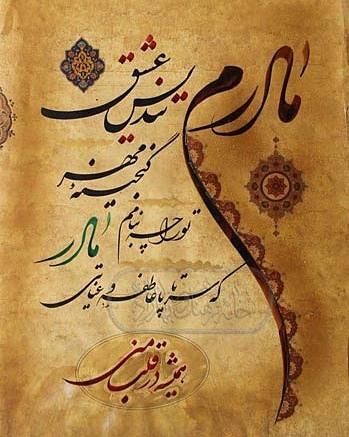 مادرم
تندیس عشق
گنجینه مهر
تو را چه بنامم مادر
که سر تا پا عاطفه و عنایتی
همیشه در قلب منی